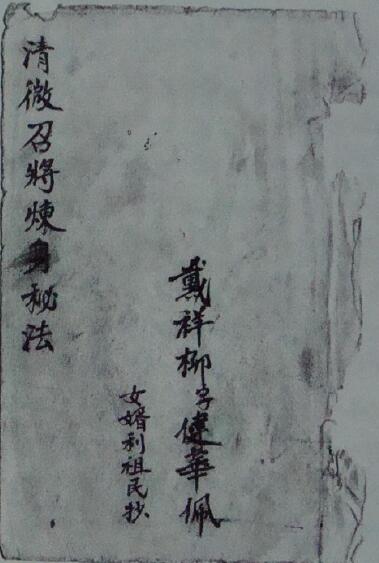 戴祥柳字健華佩
女婿利祖民抄
清微召將煉身秘法